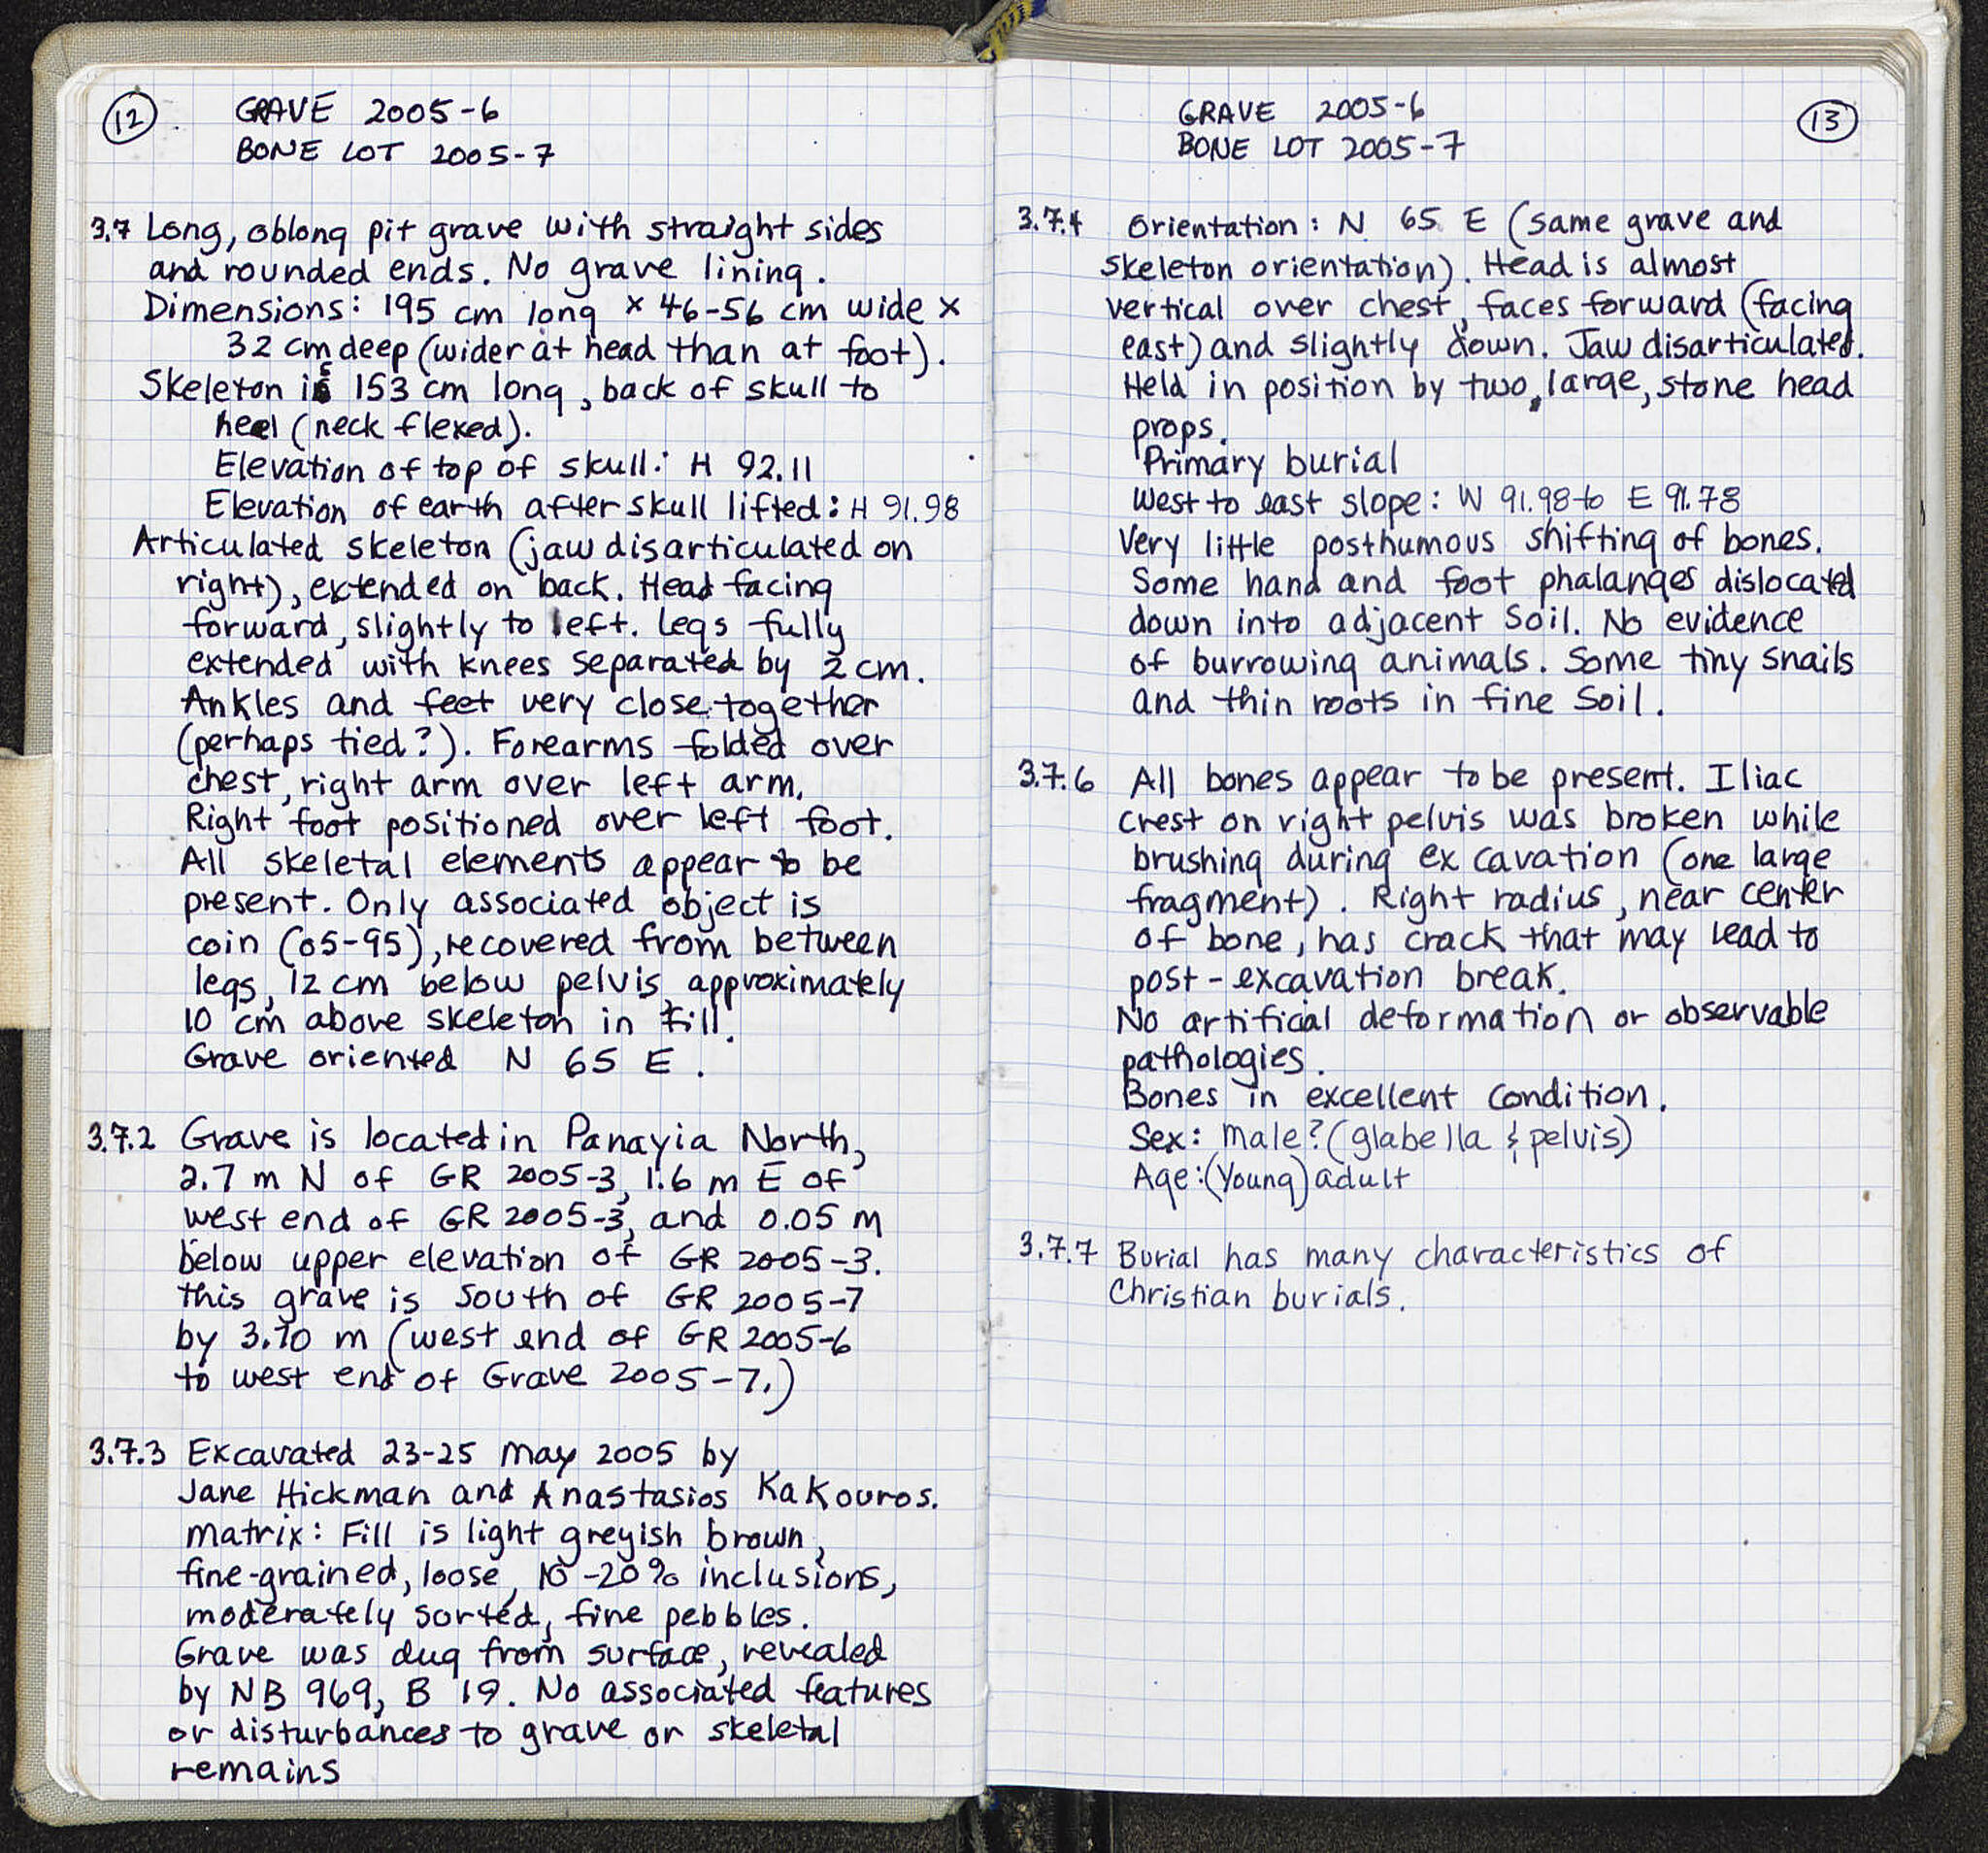 12
GRAVE 2005-6
BONE LOT 2005-7
3.7 Long, oblong pit grave with straight sides
and rounded ends. No grave lining.
Dimensions: 195 cm long × 46-56 cm wide ×
32 cm deep (wider at head than at foot).
Skeleton is 153 cm long, back of skull to
heel (neck flexed).
Elevation of top of skull: H 92.11
Elevation of earth after skull lifted: H 91.98
Articulated skeleton (jaw disarticulated on
right), extended on back. Head facing
forward, slightly to left. Legs fully
extended with knees separated by 2 cm.
Ankles and feet very close together
(perhaps tied?). Forearms folded over
chest, right arm over left arm.
Right foot positioned over left foot.
All skeletal elements appear to be
present. Only associated object is
coin (05-95), recovered from between
legs, 12 cm below pelvis, approximately
10 cm above skeleton in fill.
Grave oriented N 65 E.
3.7.2 Grave is located in Panayia North,
2.7 m N of GR 2005-3, 1.6 m E of
west end of GR 2005-3, and 0.05 m
below upper elevation of GR 2005-3.
This grave is South of GR 2005-7
by 3.70 m (west end of GR 2005-6
to west end of Grave 2005-7.)
3.7.3 Excavated 23-25 May 2005 by
Jane Hickman and Anastasios Kakouros.
Matrix: Fill is light greyish brown,
fine-grained, loose, 10-20% inclusions,
moderately sorted, fine pebbles.
Grave was dug from surface, revealed
by NB 969, B 19. No associated features
or disturbances to grave or skeletal
remains
GRAVE 2005-6
13
BONE LOT 2005-7
3.7.4 Orientation: N 65 E (same grave and
skeleton orientation). Head is almost
vertical over chest, faces forward (facing
east) and slightly down. Jaw disarticulated.
Held in position by two, large, stone head
props.
Primary burial
West to east slope: W 91.98 to E 91.78
Very little posthumous shifting of bones.
Some hand and foot phalanges dislocated
down into adjacent soil. No evidence
of burrowing animals. Some tiny snails
and thin roots in fine soil.
3.7.6 All bones appear to be present. Iliac
crest on right pelvis was broken while
brushing during excavation (one large
fragment). Right radius, near center
of bone, has crack that may lead to
post-excavation break.
No artificial deformation or observable
pathologies.
Bones in excellent condition.
Sex: Male? (glabella & pelvis)
Age: (Young) adult
3.7.7 Burial has many characteristics of
Christian burials.